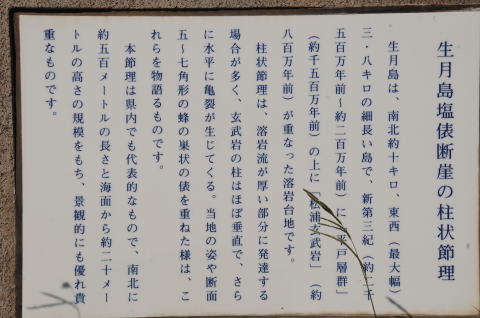 生月島塩俵断崖の柱状節理
生月島は、南北約十キロ、東西(最大幅)
三・八キロの細長い島で、新第三紀(約二千
五百万年前~約二百万年前)に「平戸層群」
(約千五百万年前)の上に「松浦玄武岩」(約
八百万年前)が重なった溶岩台地です。
柱状節理は、溶岩流が厚い部分に発達する
場合が多く、玄武岩の柱はほぼ垂直で、さら
に水平に亀裂が生じてくる。当地の姿や断面
五~七角形の蜂の巣状の俵を重ねた様は、こ
れらを物語るものです。
本節理は県内でも代表的なもので、南北に
約五百メートルの長さと海面から約二十メー
トルの高さの規模をもち、景観的にも優れ貴
重なものです。